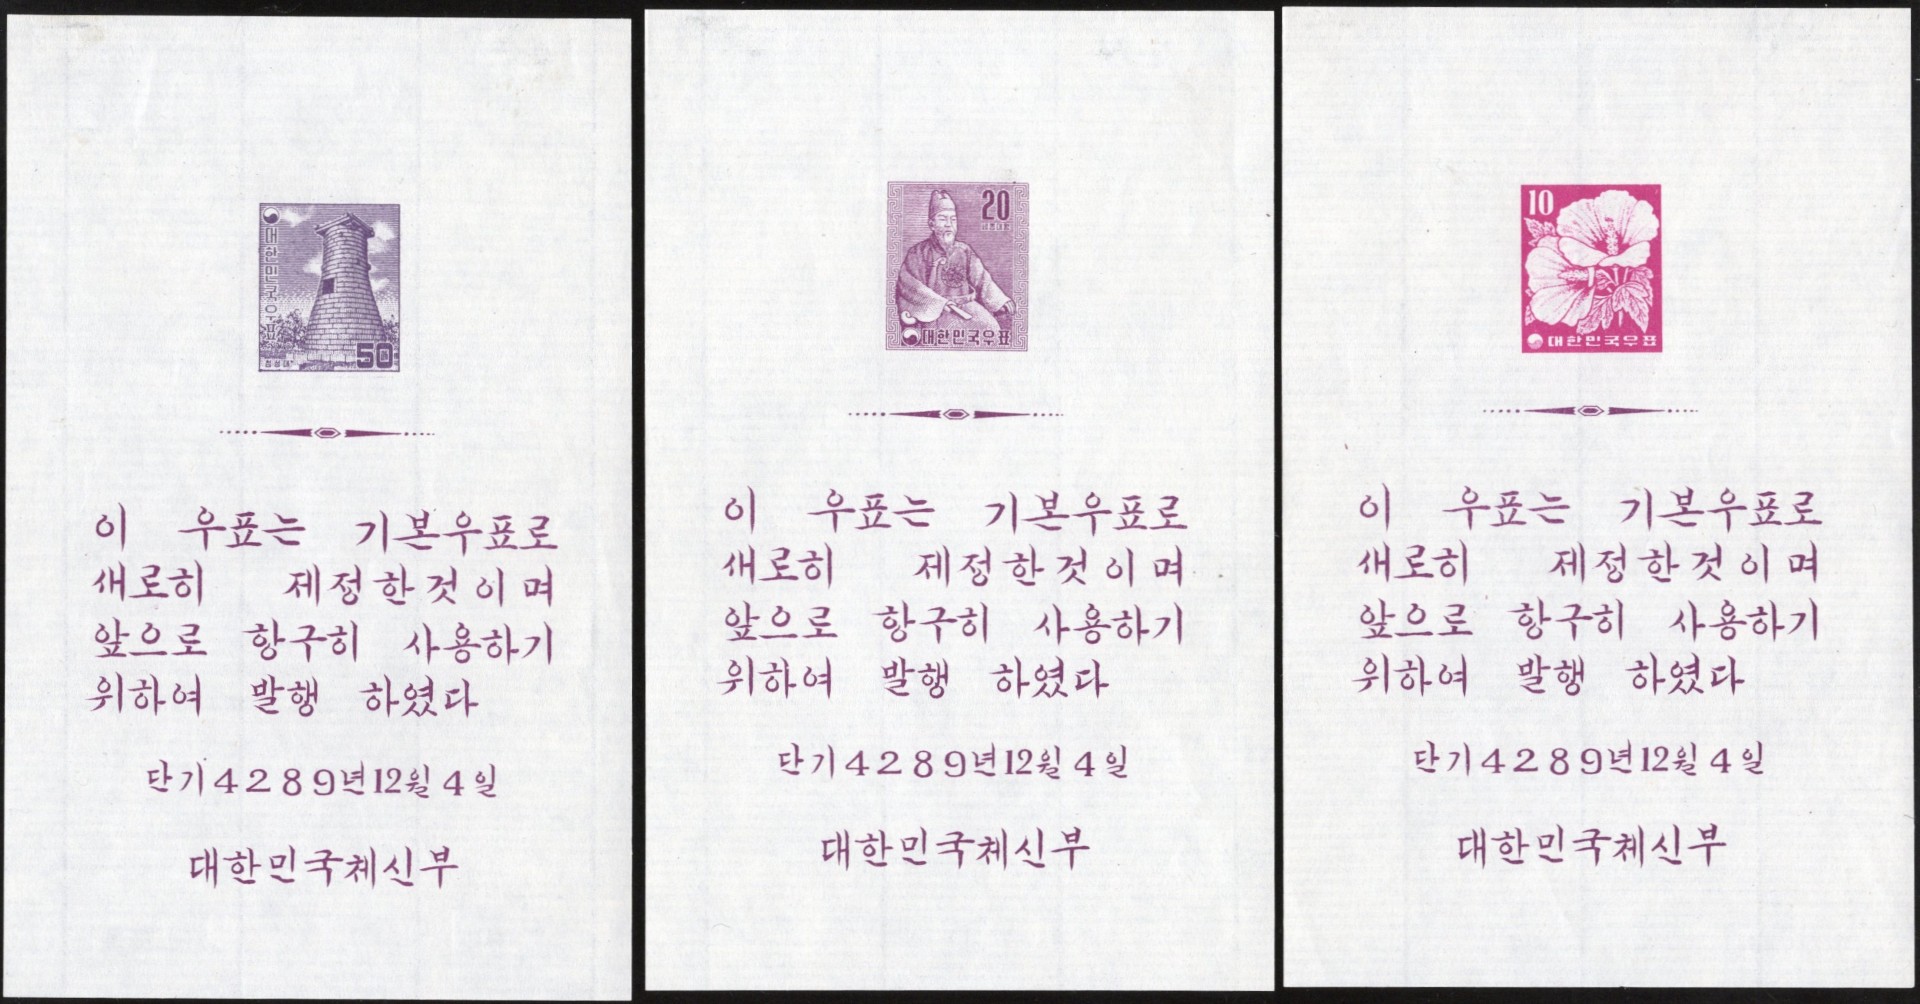 대한민국우표
50
첨성대
이 우표는 기본우표로
새로히 제정한것이며
앞으로 항구히 사용하기
위하여 발행 하였다
단기4289년12월4일
대한민국체신부
20
세종대왕
대한민국우표
이 우표는 기본우표로
새로히 제정한것이며
앞으로 항구히 사용하기
위하여 발행 하였다
단기4289년12월4일
대한민국체신부
10
대한민국우표
이 우표는 기본우표로
새로히 제정한것이며
앞으로 항구히 사용하기
위하여 발행 하였다
단기4289년12월4일
대한민국체신부